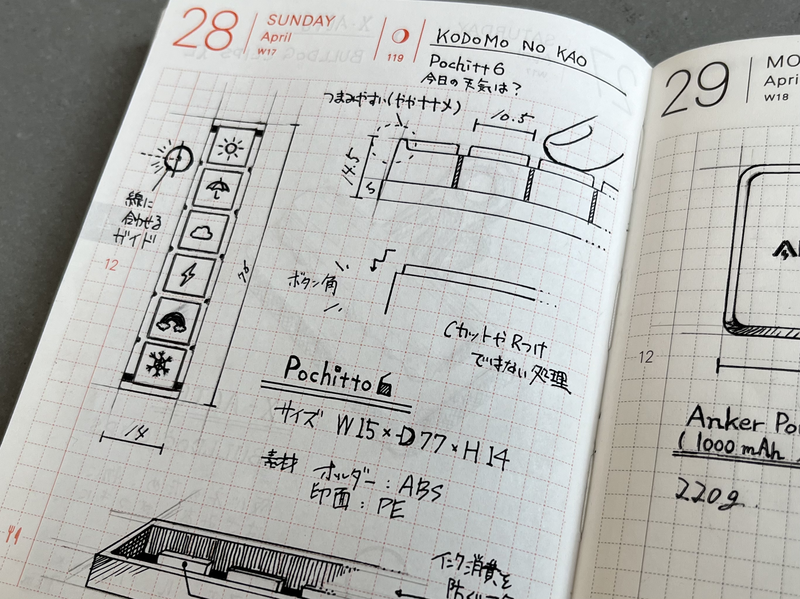 28
SUNDAY
April
W17
119
KODOMO NO KAO
Pochitt6
今日の天気は?
つまみやすい(ややナナメ)
10.5
14.5
5
線に
合わせる
ガイド
12
76
ボタン角
Cカットや Rつけ
ではない処理
Pochitto6
サイズ W15×D77×H14
素材 ホルダー:ABS
印面:PE
14
インク消費を
29
MO
April
W18
12
Anker Po
(1000 mAh
220g